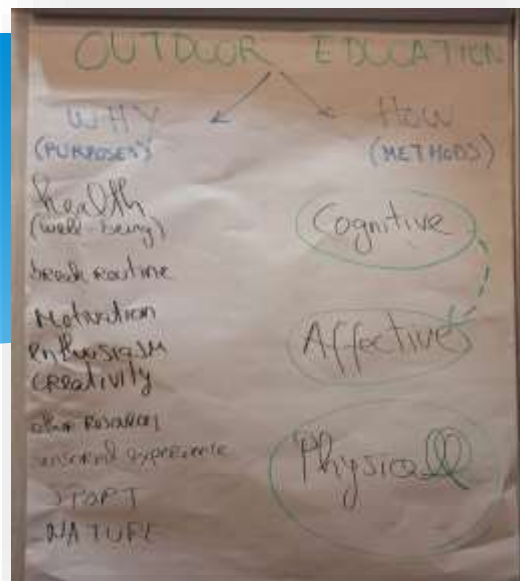 OUTDOOR EDUCATION
WHY
(PURPOSES)
health
(well-being)
break routine
Motivation
enthusiasm
creativity
other resources
sensorial experience
SPORT
NATURE
HOW
(METHODS)
Cognitive
Affective
Physicall